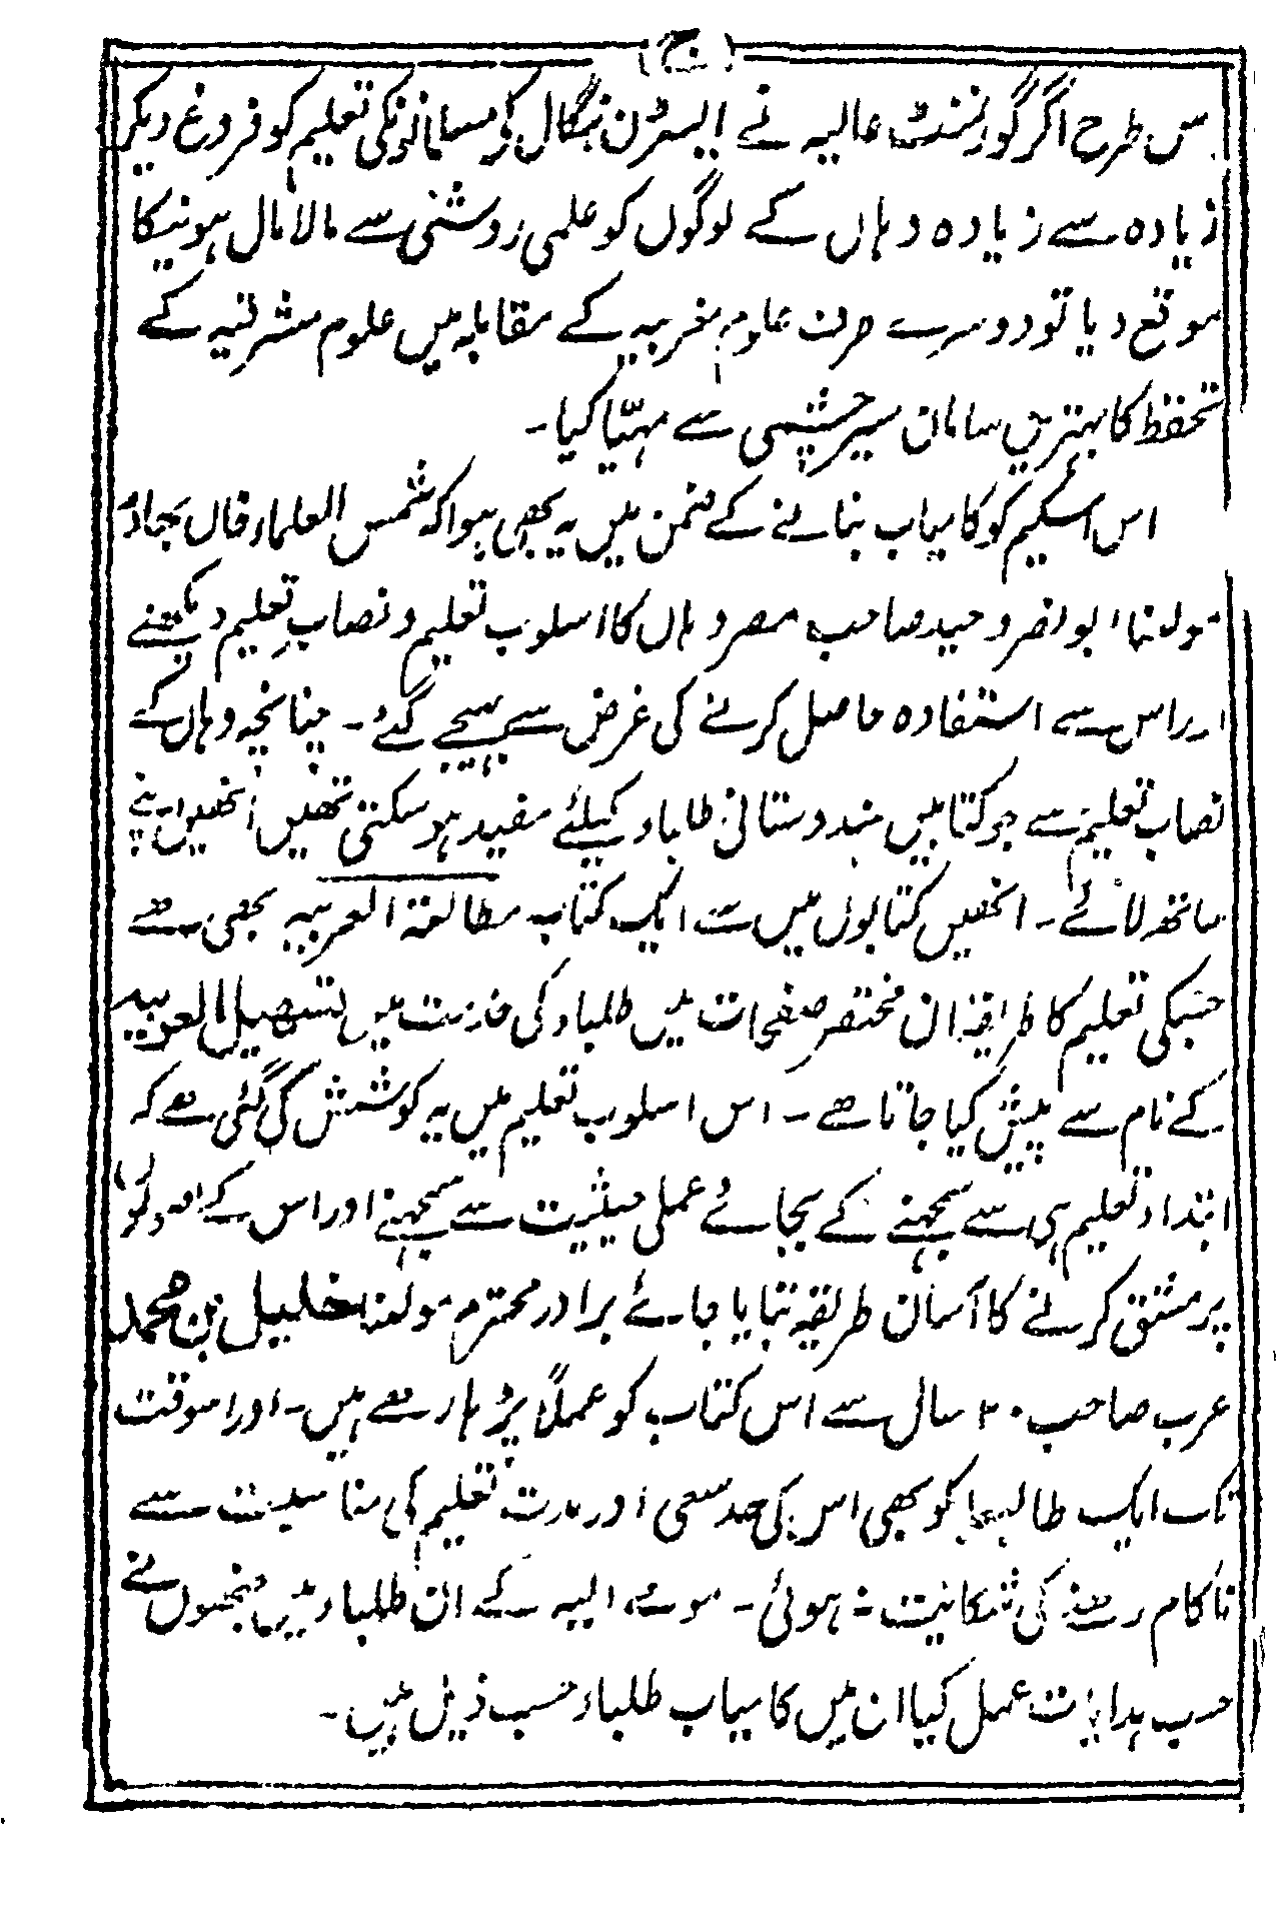 (ج)
اس طرح اگر گورنمنٹ عالیہ نے ایسٹرن بنگال کی مسلمانونکی تعلیم کو فروغ دیکر
زیادہ سے زیادہ وہاں کے لوگوں کو علمی روشنی سے مالامال ہونیکا
موقع دیا تو دوسرے طرف علوم مغربیہ کے مقابلہ میں علوم مشرقیہ کے
تحفظ کا بہترین سامان سیر چشمی سے مہیّا کیا۔
اس اسکیم کو کامیاب بنانے کے ضمن میں یہ بھی ہوا کہ شمس العلماء خان بہادر
مولٰنا ابو نصر وحید صاحب مصر وہاں کا اسلوب تعلیم و نصابِ تعلیم دیکھنے
اور اس سے استفادہ حاصل کرنے کی غرض سے بھیجے گئے۔ چنانچہ وہاں کے
نصاب تعلیم سے جو کتابیں ہندوستانی طلباء کیلئے مفید ہو سکتی تھیں انھیں اپنے
ساتھ لائے۔ انھیں کتابوں میں سے ایک کتاب مطالعۃ العربیہ بھی ہے
جسکی تعلیم کا طریقہ ان مختصر صفحات میں طلباء کی خدمت میں تسہیل العربیہ
کے نام سے پیش کیا جاتا ہے۔ اس اسلوب تعلیم میں یہ کوشش کی گئی ہے کہ
ابتداء تعلیم ہی سے سمجہنے کے بجائے عملی حیثیت سے سمجہنے اور اس کے اصولوں
پر مشق کرنے کا آسان طریقہ بتایا جائے برادر محترم مولٰنا خلیل بن محمد
عرب صاحب ۲۰ سال سے اس کتاب کو عملاً پڑہا رہے ہیں۔ اور اسوقت
تک ایک طالبعلم کو بھی اس کی جدسعی اور مدت تعلیم کی مناسبت سے
ناکام رہنے کی شکایت نہ ہوئی۔ الیہ کے ان طلباء میں جنھوں نے
حسب ہدایت عمل کیا ان میں کامیاب طلباء حسب ذیل ہیں۔